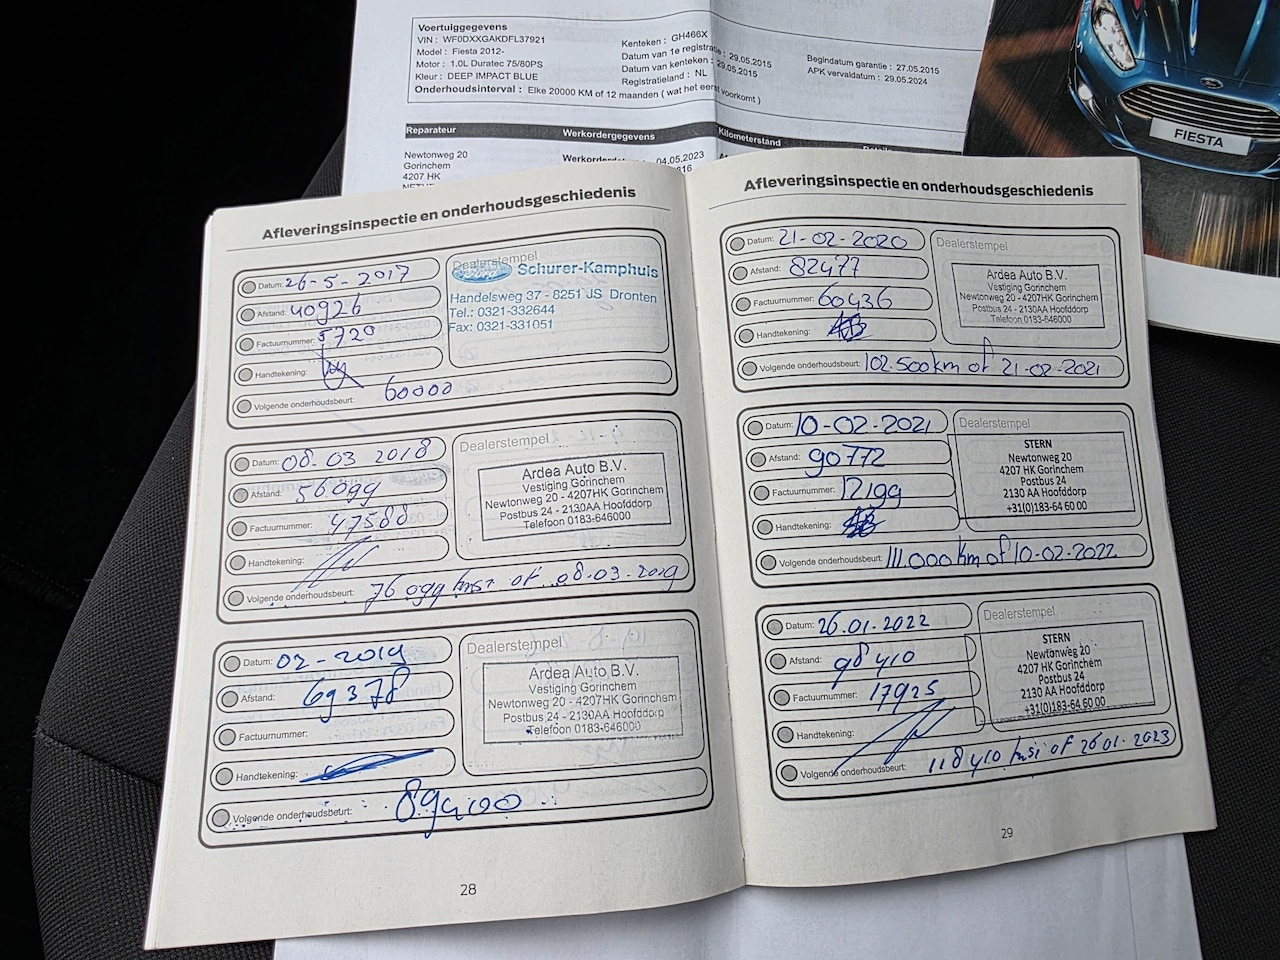 Voertuiggegevens
VIN : WF0DXXGAKDFL37921
Model : Fiesta 2012-
Motor : 1.0L Duratec 75/80PS
Kleur : DEEP IMPACT BLUE
Onderhoudsinterval : Elke 20000 KM of 12 maanden ( wat het eerst voorkomt )
Kenteken : GH466X
Datum van 1e registratie : 29.05.2015
Datum van kenteken : 29.05.2015
Registratieland : NL
Begindatum garantie : 27.05.2015
APK vervaldatum : 29.05.2024
Reparateur Werkordergegevens Kilometerstand
Newtonweg 20
Gorinchem
4207 HK
04.05.2023
FIESTA
Afleveringsinspectie en onderhoudsgeschiedenis
Datum: 26-5-2017
Afstand: 40926
Factuurnummer: 5720
Handtekening:
Volgende onderhoudsbeurt: 60000
Dealerstempel
Ford Schurer-Kamphuis
Handelsweg 37 - 8251 JS Dronten
Tel.: 0321-332644
Fax: 0321-331051
Datum: 08-03 2018
Afstand: 56099
Factuurnummer: 47588
Handtekening:
Volgende onderhoudsbeurt: 76099 kms of 08-03-2019
Dealerstempel
Ardea Auto B.V.
Vestiging Gorinchem
Newtonweg 20 - 4207HK Gorinchem
Postbus 24 - 2130AA Hoofddorp
Telefoon 0183-646000
Datum: 02-2019
Afstand: 69378
Factuurnummer:
Handtekening:
Volgende onderhoudsbeurt:
Dealerstempel
Ardea Auto B.V.
Vestiging Gorinchem
Newtonweg 20 - 4207HK Gorinchem
Postbus 24 - 2130AA Hoofddorp
Telefoon 0183-646000
28
Afleveringsinspectie en onderhoudsgeschiedenis
Datum: 21-02-2020
Afstand: 82477
Factuurnummer: 60436
Handtekening:
Volgende onderhoudsbeurt: 102.500km of 21-02-2021
Dealerstempel
Ardea Auto B.V.
Vestiging Gorinchem
Newtonweg 20 - 4207HK Gorinchem
Postbus 24 - 2130AA Hoofddorp
Telefoon 0183-646000
Datum: 10-02-2021
Afstand: 90772
Factuurnummer: 12199
Handtekening:
Volgende onderhoudsbeurt: 111.000km of 10-02-2022
Dealerstempel
STERN
Newtonweg 20
4207 HK Gorinchem
Postbus 24
2130 AA Hoofddorp
+31(0)183-64 60 00
Datum: 26.01.2022
Afstand: 98410
Factuurnummer: 17925
Handtekening:
Volgende onderhoudsbeurt: 118410 kms of 26 01-2023
Dealerstempel
STERN
Newtonweg 20
4207 HK Gorinchem
Postbus 24
2130 AA Hoofddorp
+31(0)183-64 60 00
29